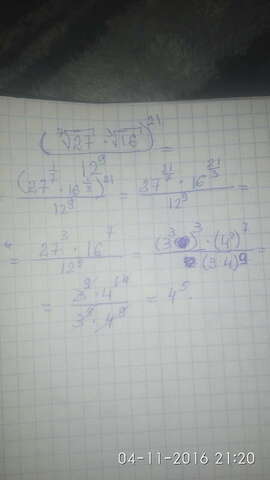 (⁷√27 · ³√16)²¹ / 12⁹ =
(27^(1/7) · 16^(1/3))²¹ / 12⁹ = 27^(21/7) · 16^(21/3) / 12⁹ =
= 27³ · 16⁷ / 12⁹ = (3³)³ · (4²)⁷ / (3·4)⁹
= 3⁹ · 4¹⁴ / 3⁹ · 4⁹ = 4⁵.
04-11-2016 21:20